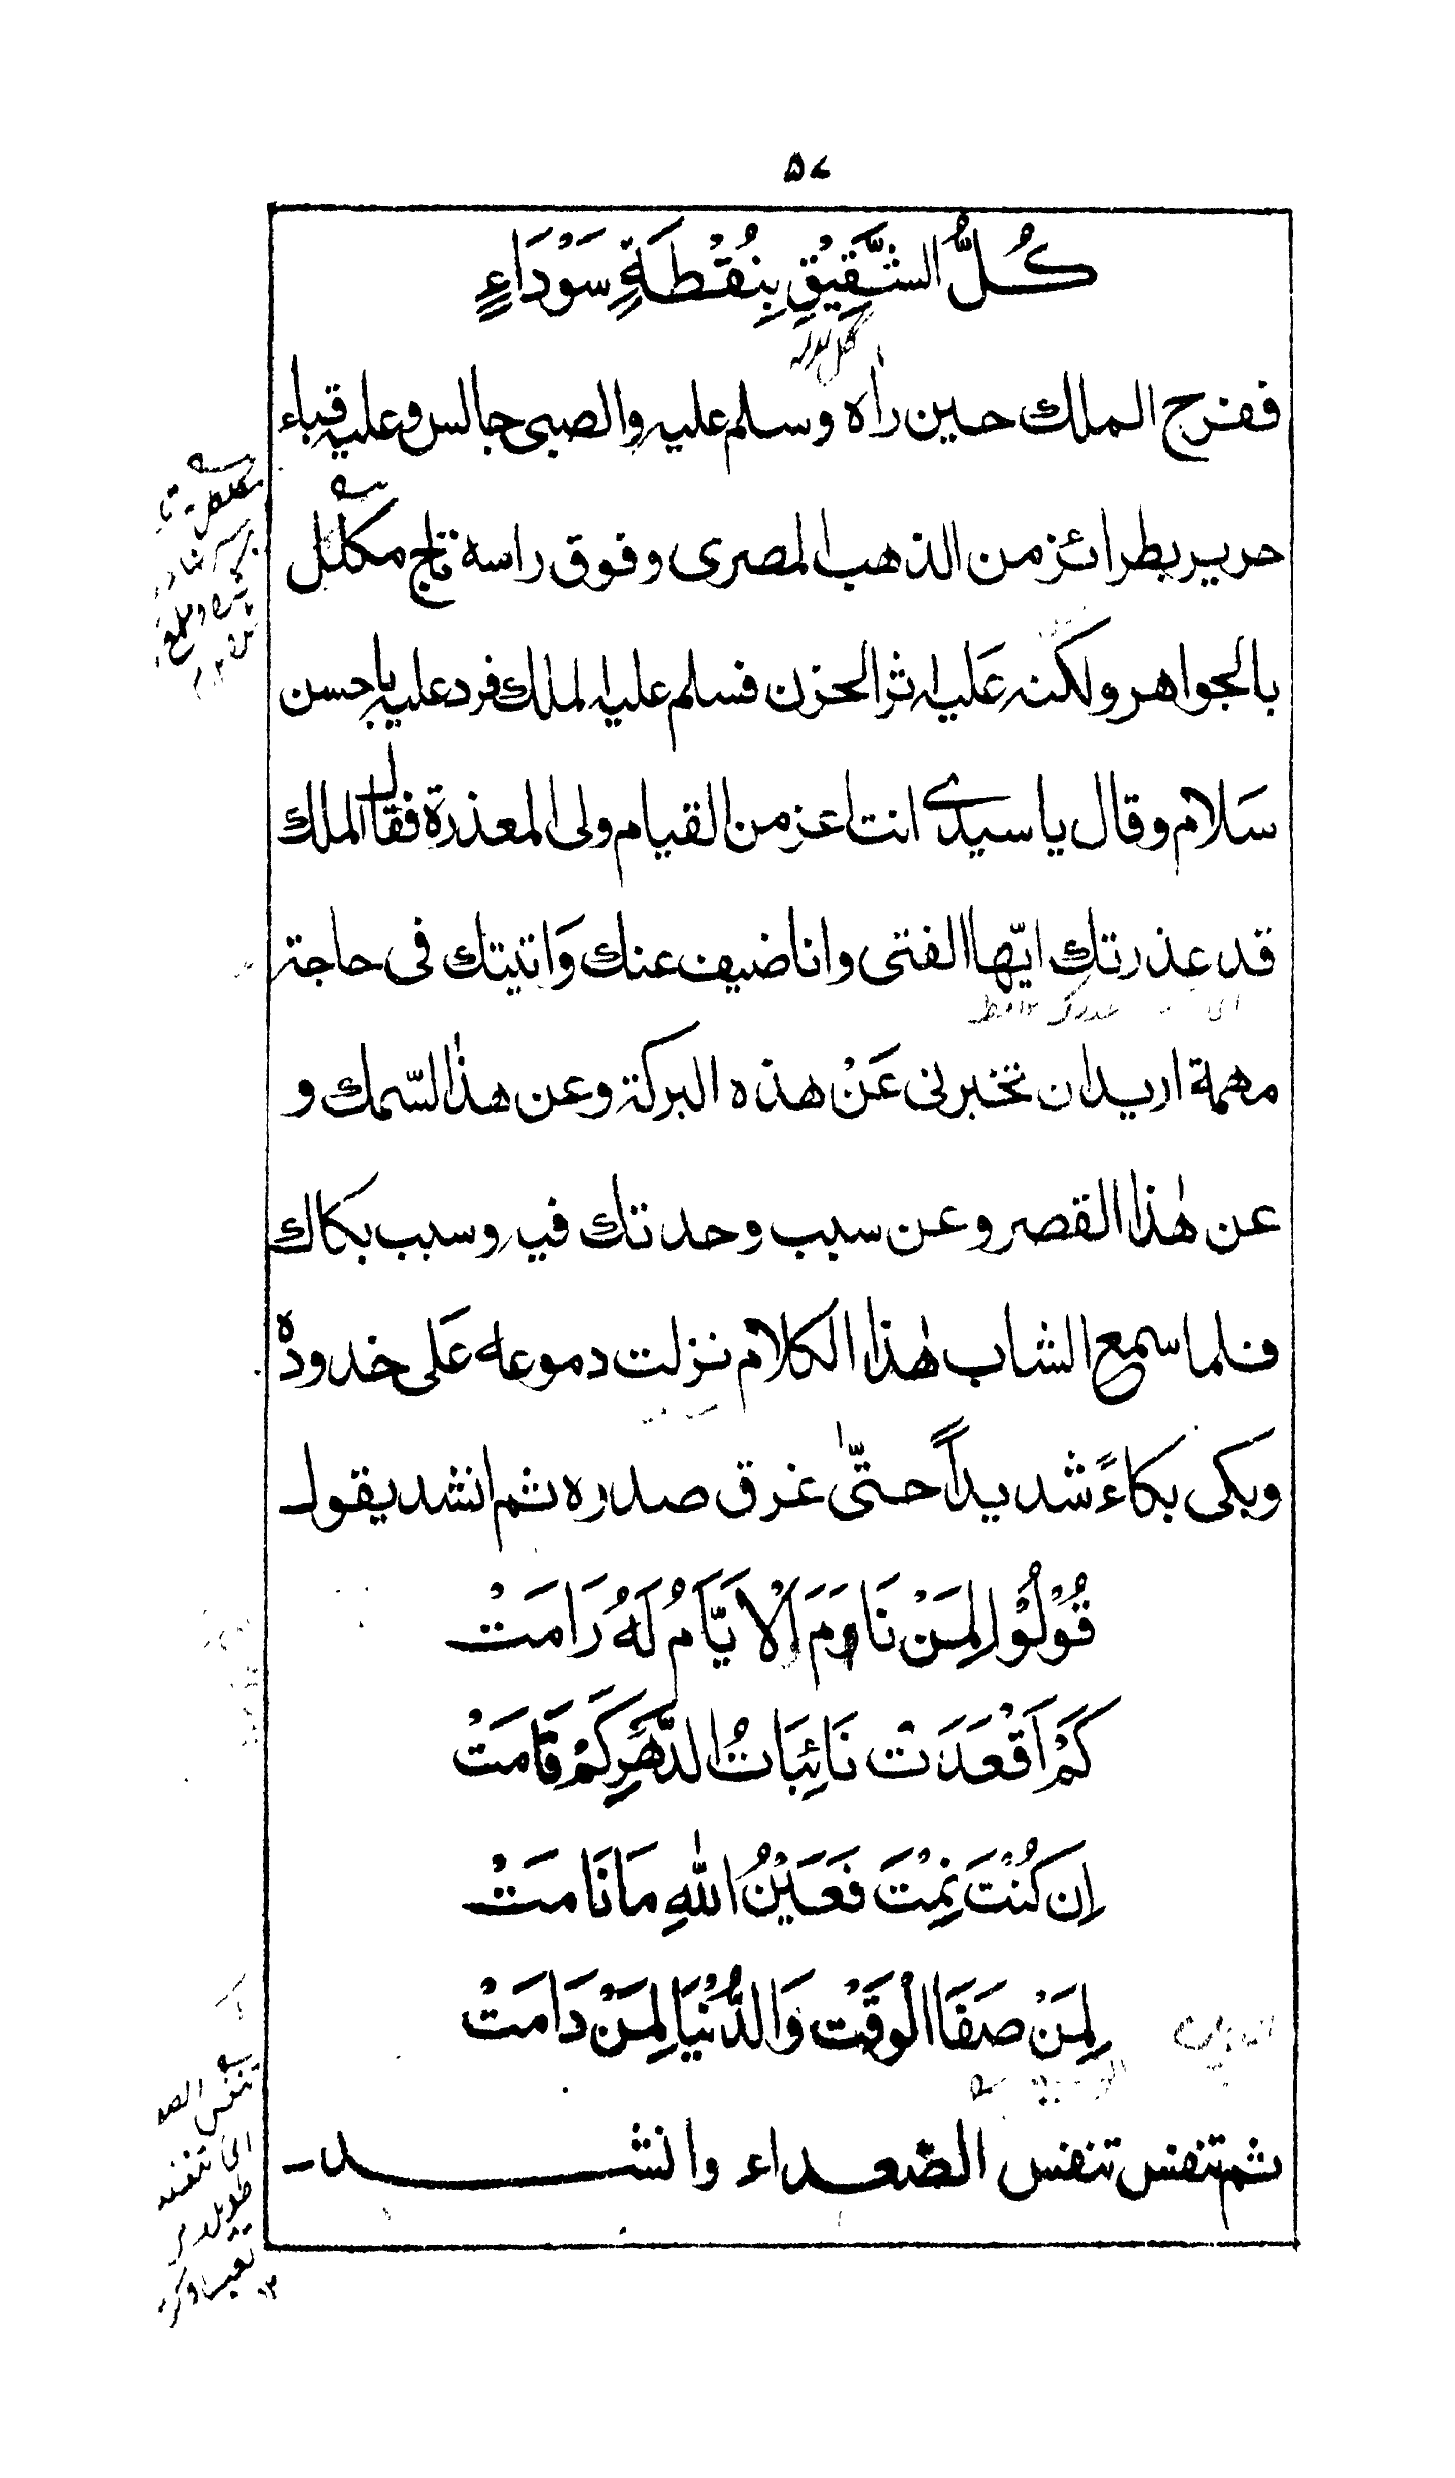 ۵۷
كُلُّ الشَّقِيْقِ بِنُقْطَةٍ سَوْدَاءٍ
ففرح الملك حين راٰه وسلم عليه والصبى جالس وعليه قباء
حرير بطرائز من الذهب المصرى وفوق راسه تاج مكلل
بالجواهر ولكنه عَليه اثر الحزن فسلم عليه الملك فرد عليه باحسن
سَلام وقال يا سيدى انت اعز من القيام ولى المعذرة فقال الملك
قد عذرتك ايّها الفتى وانا ضيف عندك وَاتيتك فى حاجة
مهمة اريد ان تخبرنى عَنْ هذه البركة وعن هذا السّمك و
عن هٰذا القصر وعن سبب وحدتك فيه وسبب بكاك
فلما سمع الشاب هٰذا الكلام نزلت دموعه عَلى خدوده
وبكى بكاءً شديداً حتّٰى غرق صدره ثم انشد يقول
قُوْلُوْا لِمَنْ نَاوَمَ اَلْاَيَّامُ لَهُ رَامَتْ
كَمْ اَقْعَدَتْ نَائِبَاتُ الدَّهْرِ كَمْ قَامَتْ
اِن كُنْتَ نِمْتَ فَعَيْنُ اللهِ مَا نَامَتْ
لِمَنْ صَفَا الْوَقْتْ وَالدُّنْيَا لِمَنْ دَامَتْ
ثم تنفس تنفس الصّعداء وانشد